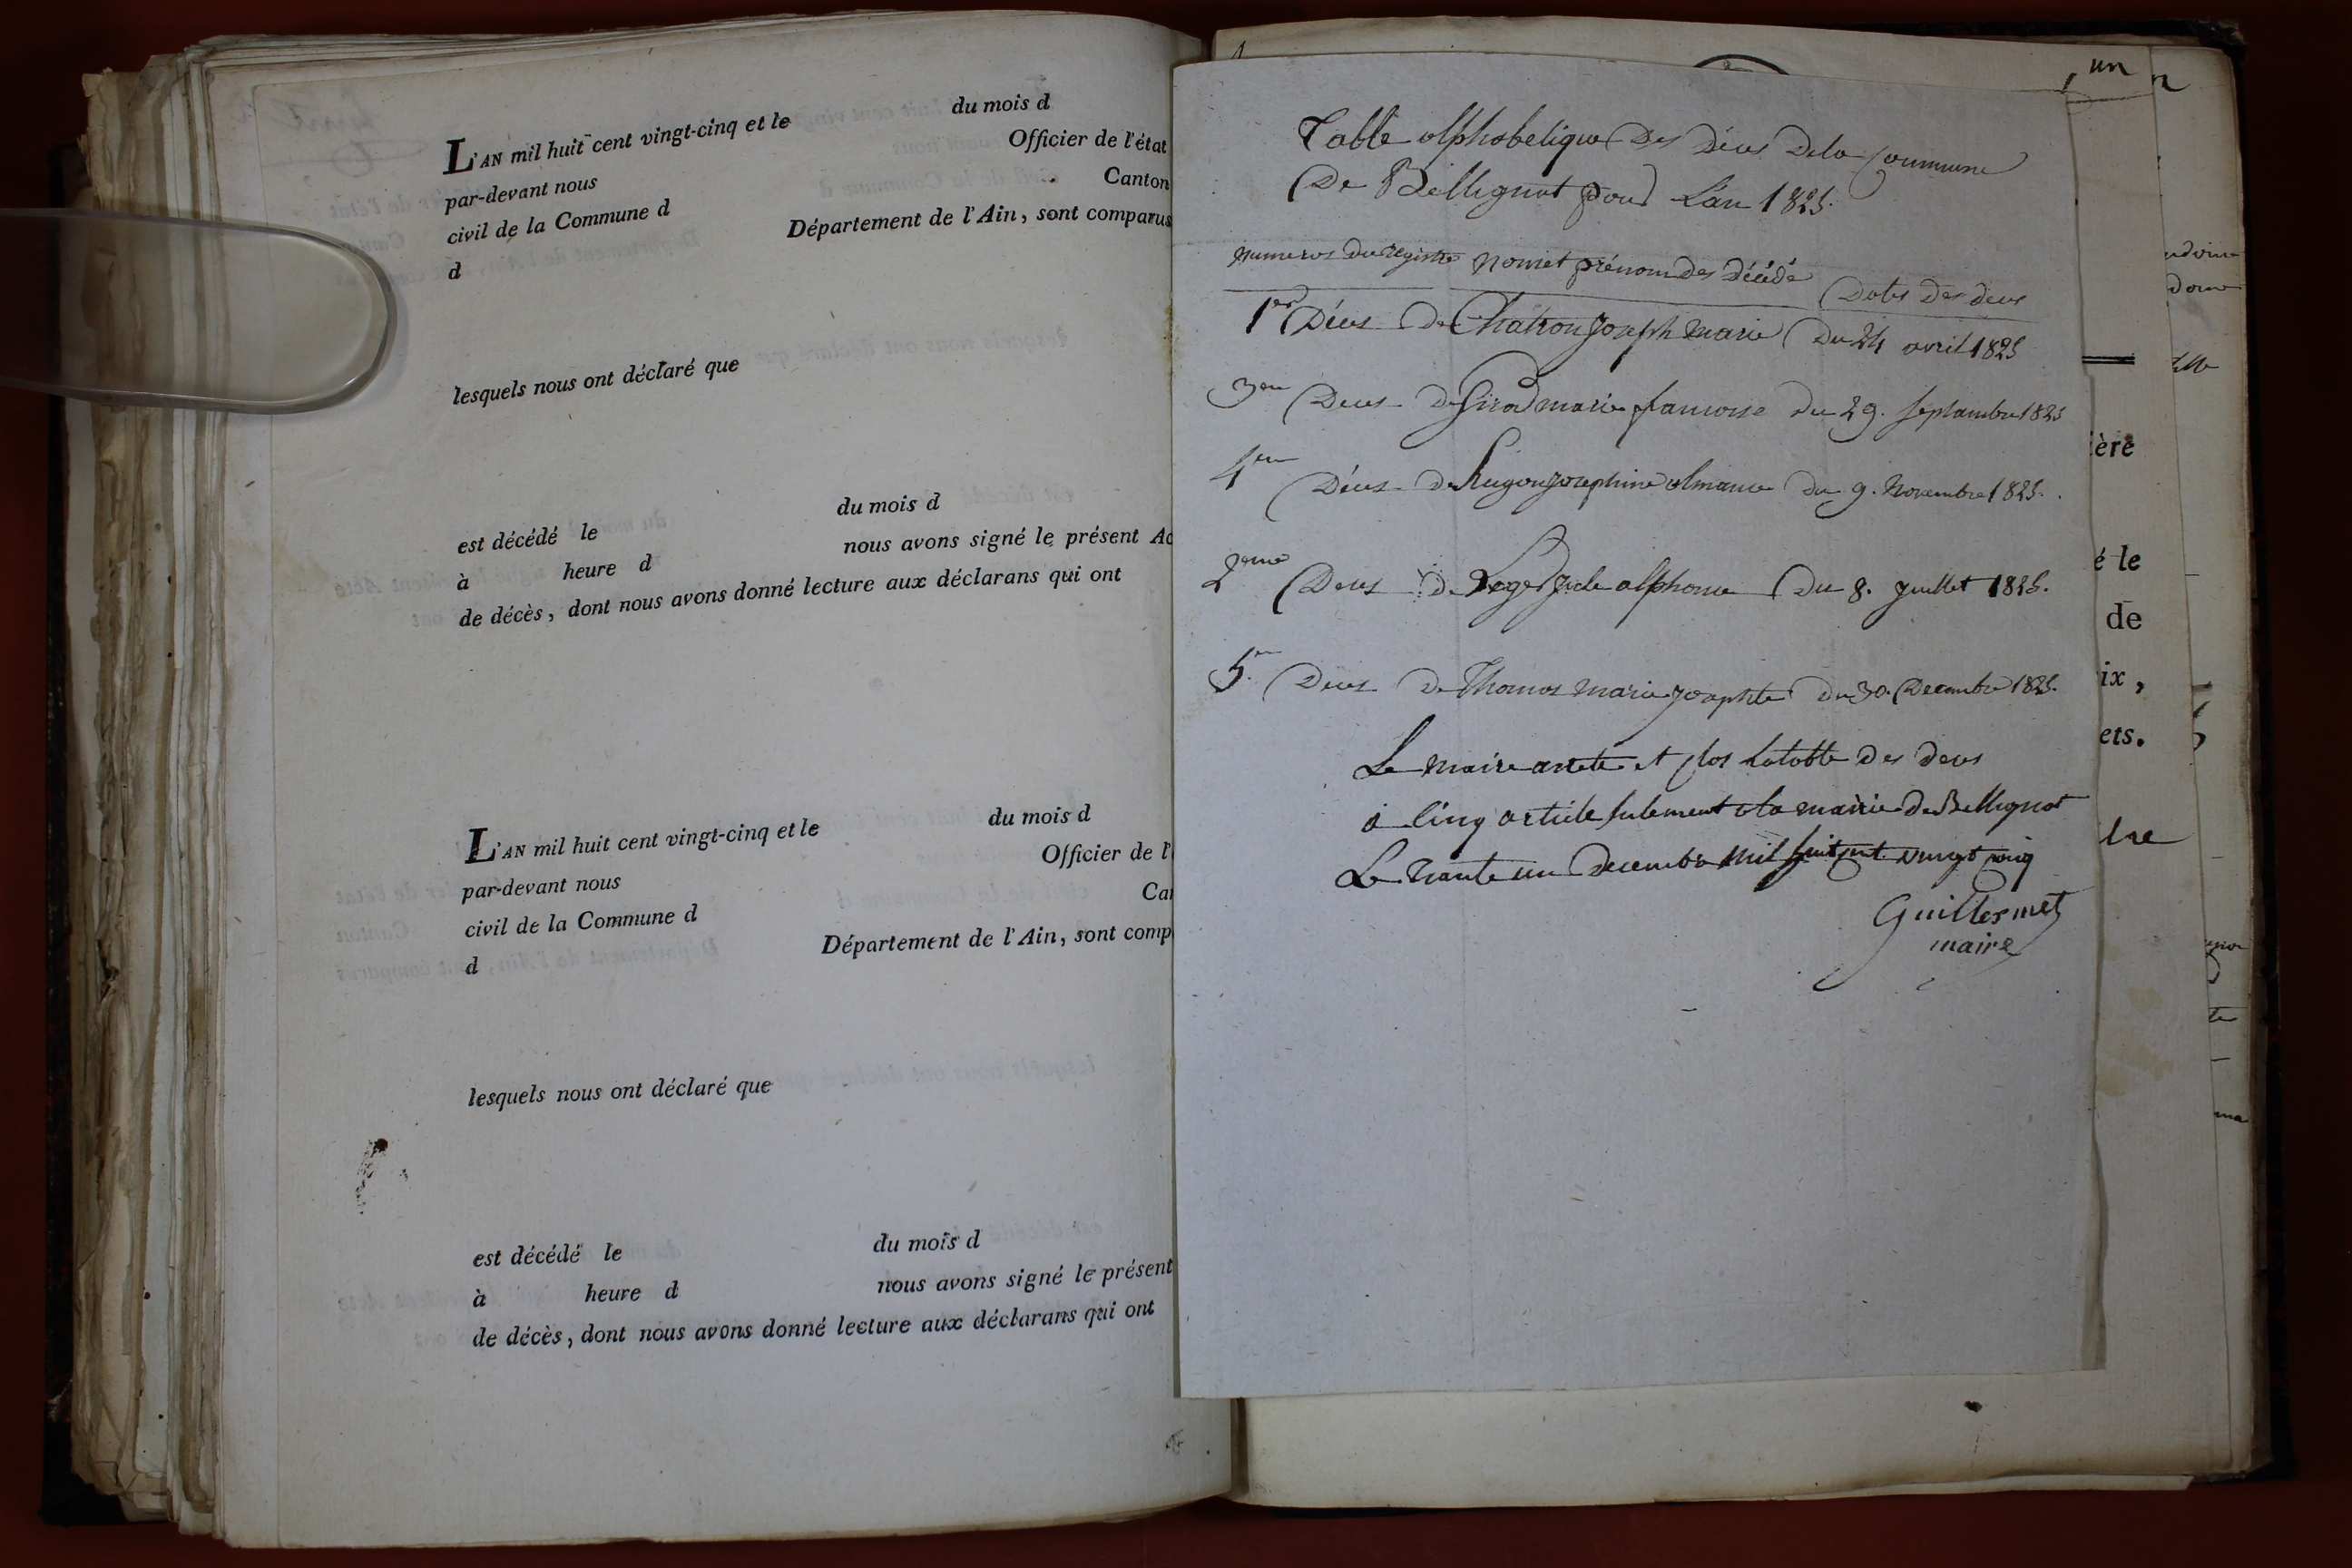 L'AN mil huit cent vingt-cinq et le du mois d
par-devant nous Officier de l'état
civil de la Commune d Canton
d Département de l'Ain, sont comparus
lesquels nous ont déclaré que
est décédé le du mois d
à heure d nous avons signé le présent Ac
de décès, dont nous avons donné lecture aux déclarans qui ont
L'AN mil huit cent vingt-cinq et le du mois d
par-devant nous Officier de l'
civil de la Commune d Can
d Département de l'Ain, sont comp
lesquels nous ont déclaré que
est décédé le du mois d
à heure d nous avons signé le présent
de décès, dont nous avons donné lecture aux déclarans qui ont
Table alphabetique Des Déces De la Commune
De Bellignat pour L'an 1825.
Numeros du registre Nom et prénom des Décédé Dates des deces
1er Déces De Chatron Joseph Marie Du 24 avril 1825
3em Deces De Girod marie francoise du 29. septambre 1825
4em Déces De Josephine Du 9. Novembre 1825.
2eme Deces De alphonse Du 8. Juillet 1825.
5em Deces De Thomas Marie Josephte Du 30. Decembre 1825.
Le maire arrete et clos la table des deces
a cinq article sulement a la mairie de Bellignat
Le trante un decembre mil huit cent vingt cinq
Guillermet
maire
un
ère
é le
de
ix,
ets.